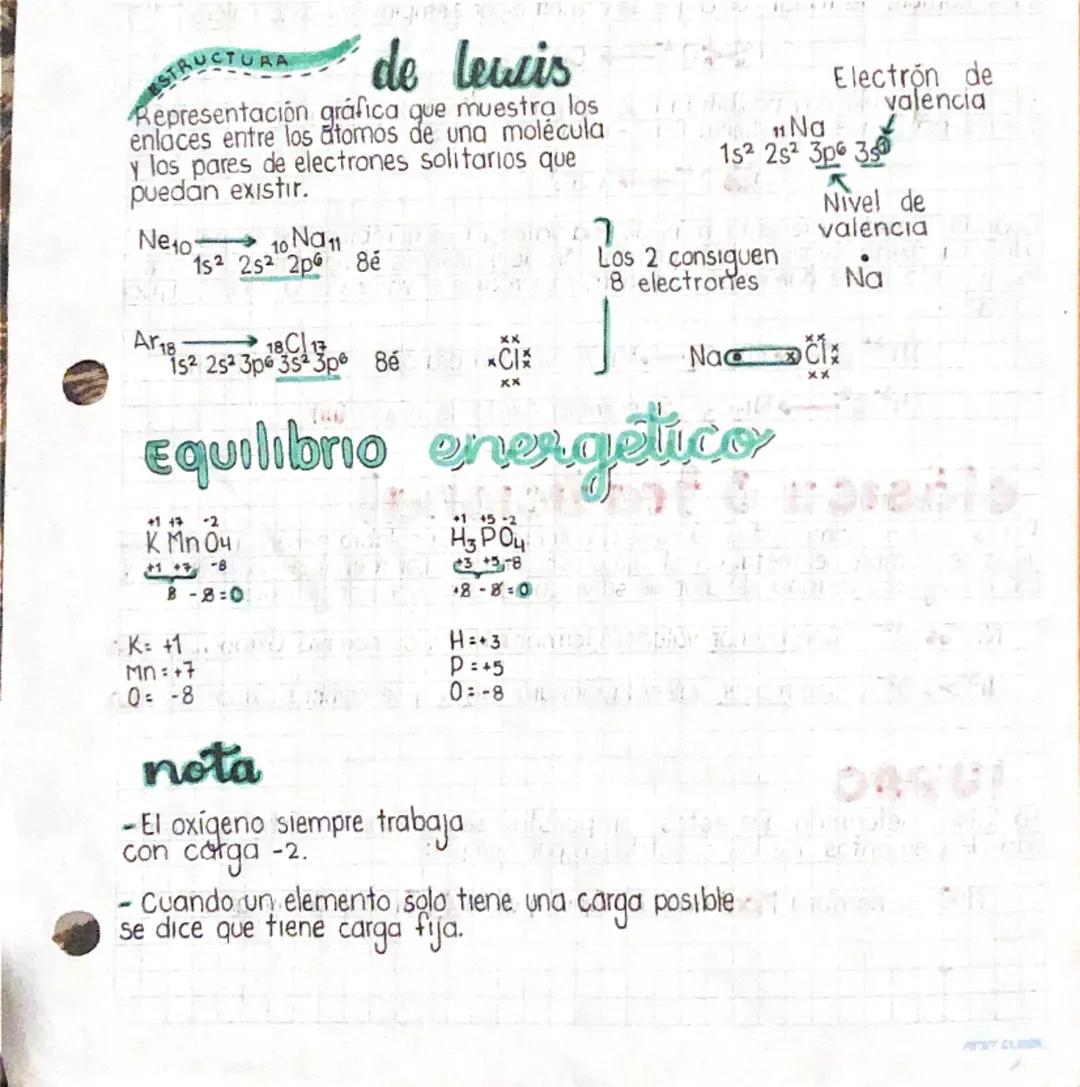 ESTRUCTURA de lewis
Representación gráfica que muestra los
enlaces entre los átomos de una molécula
y los pares de electrones solitarios que
puedan existir.
Electrón de
valencia
₁₁Na
1s² 2s² 3p⁶ 3s¹
Nivel de
valencia
Ṅa
Ne₁₀ → ₁₀Na₁₁
1s² 2s² 2p⁶ 8é
Los 2 consiguen
8 electrones
Ar₁₈ → ₁₈Cl₁₇
1s² 2s² 3p⁶ 3s² 3p⁶ 8é
xx
xClxx
xx
xx
Na• xClxx
xx
Equilibrio energético
+1 +7 -2
K Mn O₄
+1 +7 -8
8 - 8 = 0
K: +1
Mn: +7
O: -8
+1 +5 -2
H₃PO₄
+3 +5 -8
+8 - 8 = 0
H = +3
P = +5
O = -8
nota
- El oxígeno siempre trabaja
con carga -2.
- Cuando un elemento solo tiene una carga posible
se dice que tiene carga fija.